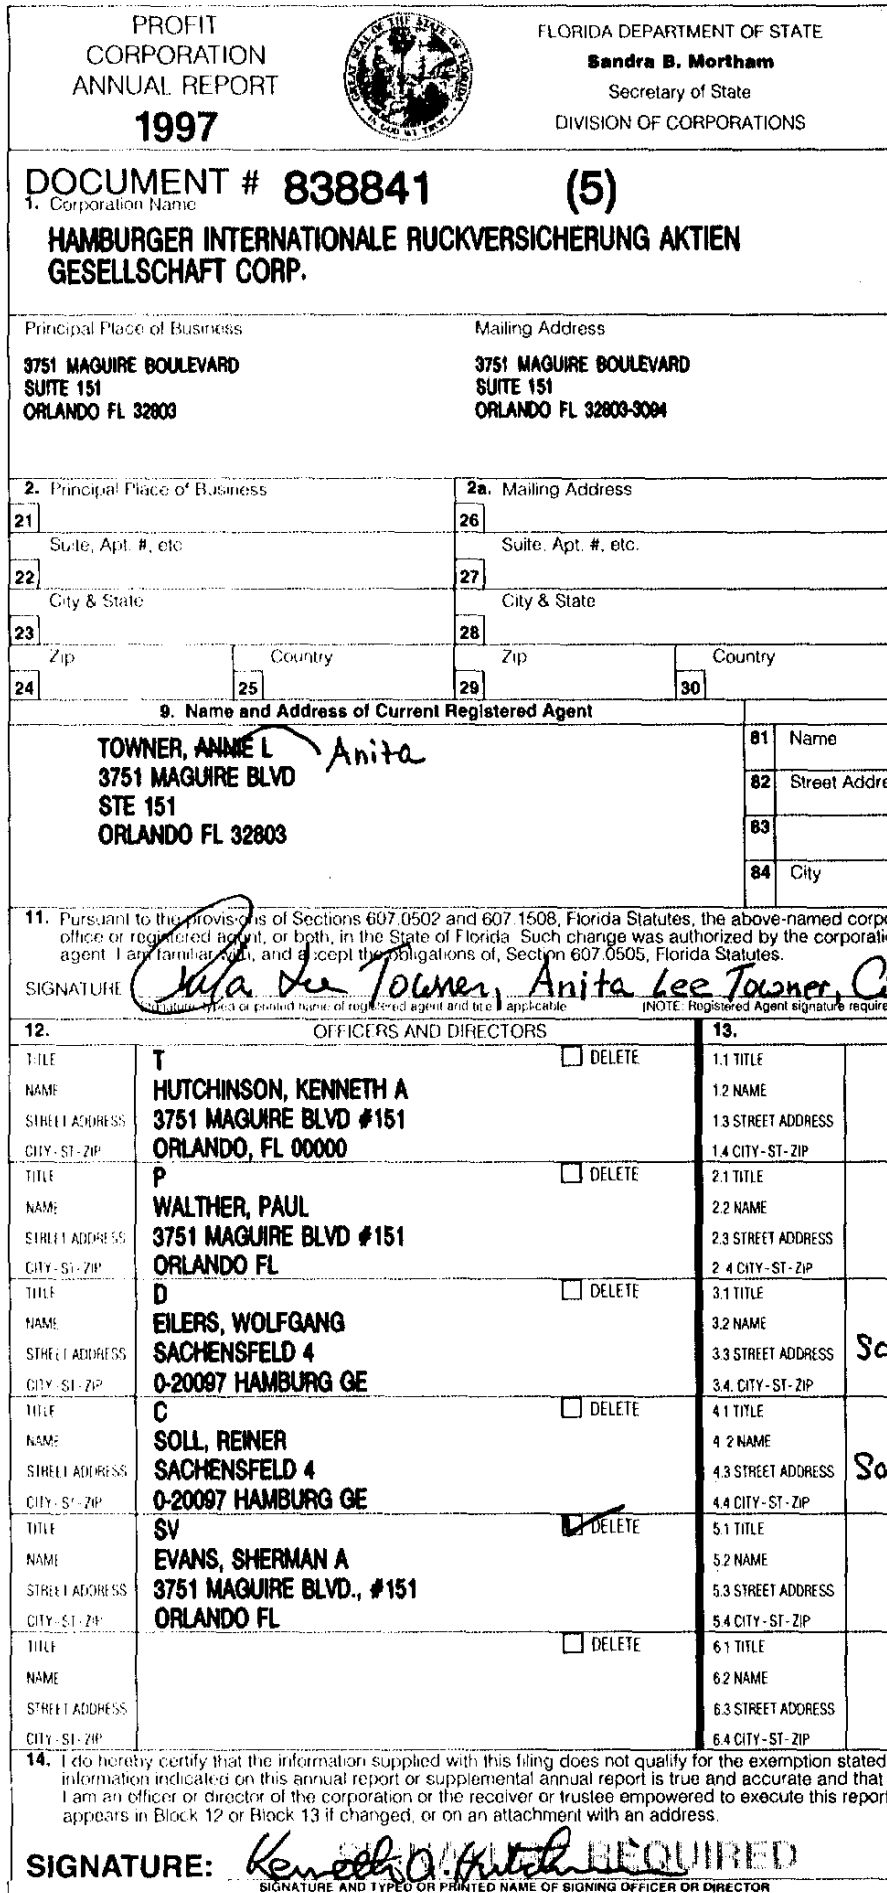 PROFIT
CORPORATION
ANNUAL REPORT
1997
GREAT SEAL OF THE STATE OF FLORIDA
IN GOD WE TRUST
FLORIDA DEPARTMENT OF STATE
Sandra B. Mortham
Secretary of State
DIVISION OF CORPORATIONS
DOCUMENT # 838841 (5)
1. Corporation Name
HAMBURGER INTERNATIONALE RUCKVERSICHERUNG AKTIEN
GESELLSCHAFT CORP.
Principal Place of Business
3751 MAGUIRE BOULEVARD
SUITE 151
ORLANDO FL 32803
Mailing Address
3751 MAGUIRE BOULEVARD
SUITE 151
ORLANDO FL 32803-3094
2. Principal Place of Business
2a. Mailing Address
21
26
Suite, Apt. #, etc
Suite, Apt. #, etc.
22
27
City & State
City & State
23
28
Zip
Country
Zip
Country
24
25
29
30
9. Name and Address of Current Registered Agent
TOWNER, ANNIE L Anita
3751 MAGUIRE BLVD
STE 151
ORLANDO FL 32803
81 Name
82 Street Addre
83
84 City
11. Pursuant to the provisions of Sections 607.0502 and 607.1508, Florida Statutes, the above-named corpo
office or registered agent, or both, in the State of Florida. Such change was authorized by the corporati
agent. I am familiar with, and accept the obligations of, Section 607.0505, Florida Statutes.
SIGNATURE Anita Lee Towner, Anita Lee Towner, C
Signature, typed or printed name of registered agent and title if applicable (NOTE: Registered Agent signature require
12. OFFICERS AND DIRECTORS
13.
TITLE T DELETE
NAME HUTCHINSON, KENNETH A
STREET ADDRESS 3751 MAGUIRE BLVD #151
CITY-ST-ZIP ORLANDO, FL 00000
1.1 TITLE
1.2 NAME
1.3 STREET ADDRESS
1.4 CITY-ST-ZIP
TITLE P DELETE
NAME WALTHER, PAUL
STREET ADDRESS 3751 MAGUIRE BLVD #151
CITY-ST-ZIP ORLANDO FL
2.1 TITLE
2.2 NAME
2.3 STREET ADDRESS
2 4 CITY-ST-ZIP
TITLE D DELETE
NAME EILERS, WOLFGANG
STREET ADDRESS SACHENSFELD 4
CITY-ST-ZIP 0-20097 HAMBURG GE
3.1 TITLE
3.2 NAME
3.3 STREET ADDRESS
3.4. CITY-ST-ZIP
TITLE C DELETE
NAME SOLL, REINER
STREET ADDRESS SACHENSFELD 4
CITY-ST-ZIP 0-20097 HAMBURG GE
4 1 TITLE
4 2 NAME
4.3 STREET ADDRESS
4.4 CITY-ST-ZIP
TITLE SV DELETE
NAME EVANS, SHERMAN A
STREET ADDRESS 3751 MAGUIRE BLVD., #151
CITY-ST-ZIP ORLANDO FL
5.1 TITLE
5.2 NAME
5.3 STREET ADDRESS
5.4 CITY-ST-ZIP
TITLE DELETE
NAME
STREET ADDRESS
CITY-ST-ZIP
6 1 TITLE
6.2 NAME
6.3 STREET ADDRESS
6.4 CITY-ST-ZIP
14. I do hereby certify that the information supplied with this filing does not qualify for the exemption stated
information indicated on this annual report or supplemental annual report is true and accurate and that
I am an officer or director of the corporation or the receiver or trustee empowered to execute this report
appears in Block 12 or Block 13 if changed, or on an attachment with an address.
SIGNATURE: Kenneth A. Hutchinson REQUIRED
SIGNATURE AND TYPED OR PRINTED NAME OF SIGNING OFFICER OR DIRECTOR